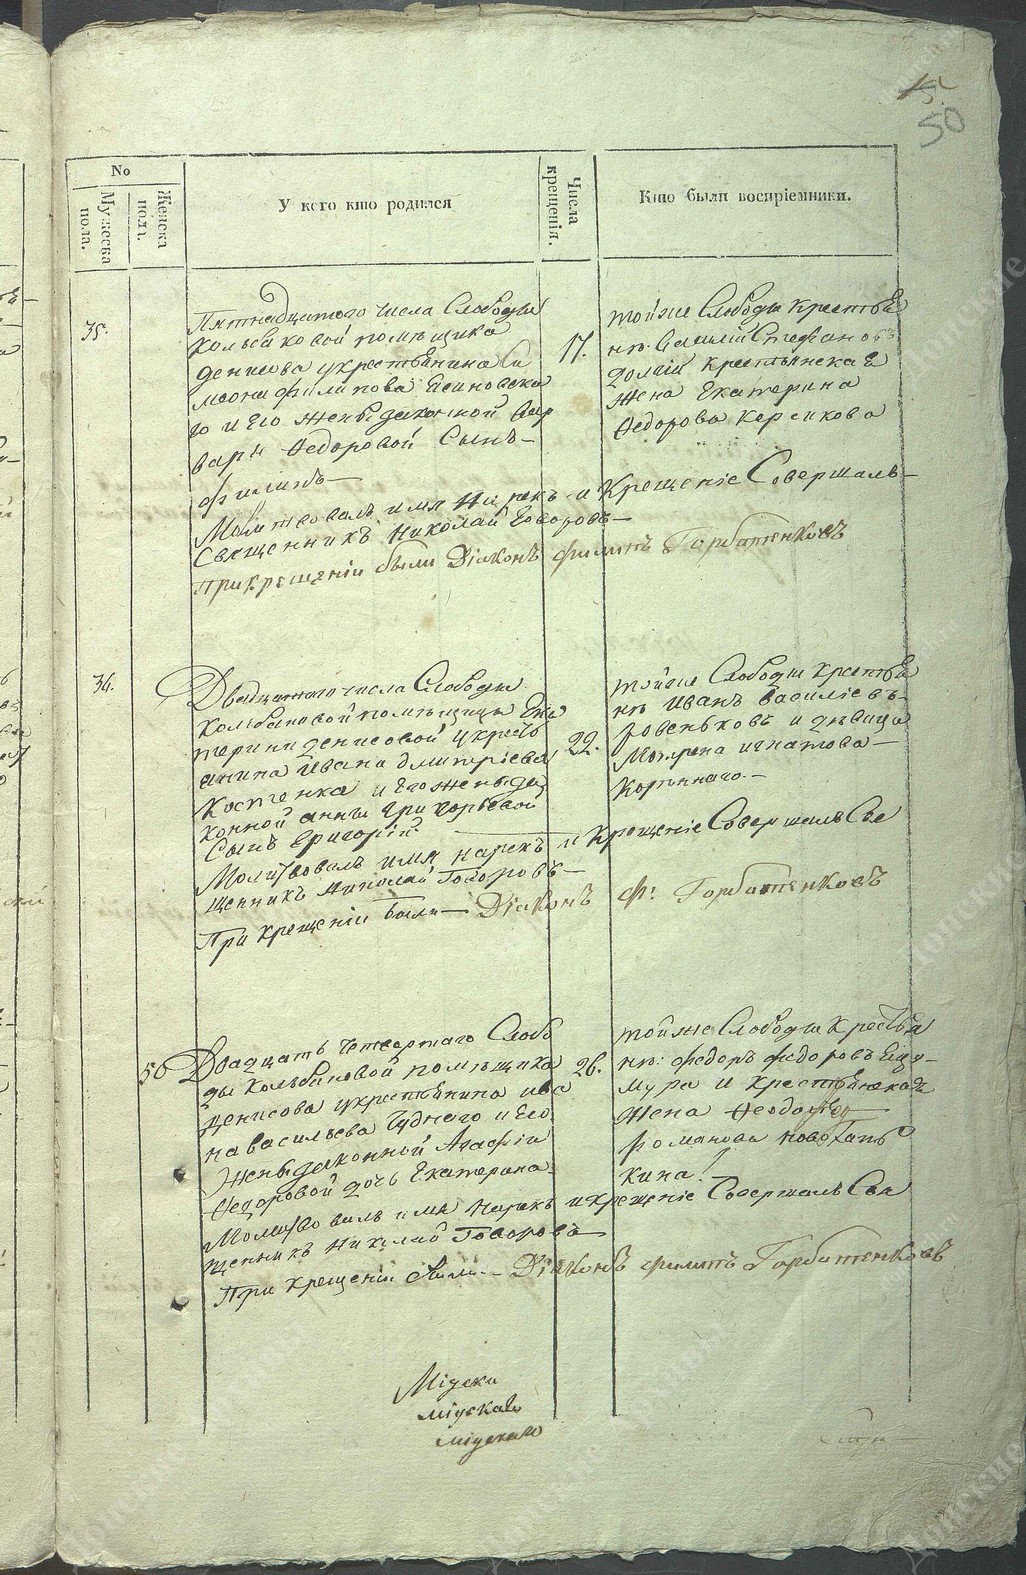 15
50
No
Мужеска пола.
Женска пола.
У кого кто родился
Числа крещенія.
Кто были воспріемники.
35.
Пятнадцатаго числа Слободы
помѣщика
Денисова укрестьянина Си
мона Филипова
го и Его жены законной Вар
вары Федоровой Сынъ
Филипъ
17.
тойже Слободы крестья
нъ: Василій Стефановъ
Долгій крестьянска Я
жена Екатерина
Федорова
Молитвовалъ имя Нарекъ и Крещеніе Совершалъ
Священникъ Николай Говоровъ
При крещеніи были Діаконъ Филипъ Горбатенковъ
36.
Двадцатаго числа Слободы
помѣщицы Ека
терины Денисовой укресть
янина Ивана Дмитріева
Костенка и Его жены за
конной Анны Григорьевой
Сынъ Григорій.
22.
тойже Слободы крестья
нъ Иванъ Василіевъ
Ровеньковъ и дѣвица
Матрена Игнатова
Молитвовалъ имя нарекъ и Крещеніе Совершалъ Свя
щенникъ Николай Говоровъ
При Крещеніи были Діаконъ Ф: Горбатенковъ
50
Двадцать Четвертаго Слобо
ды помѣщика
Денисова укрестьянина Ива
на Васильева Чуднаго и Его
жены законной Агафіи
Федоровой дочь Екатерина
26.
тойже Слободы Крестья
нъ: Федоръ Федоровъ
и крестьянская
жена Феодора
Романова
кина
Молитвовалъ имя Нарекъ и крещеніе Совершалъ Свя
щенникъ Николай Говоровъ
При Крещеніи были Діаконъ Филипъ Горбатенковъ
Міуски
Міускаго
Міускаго